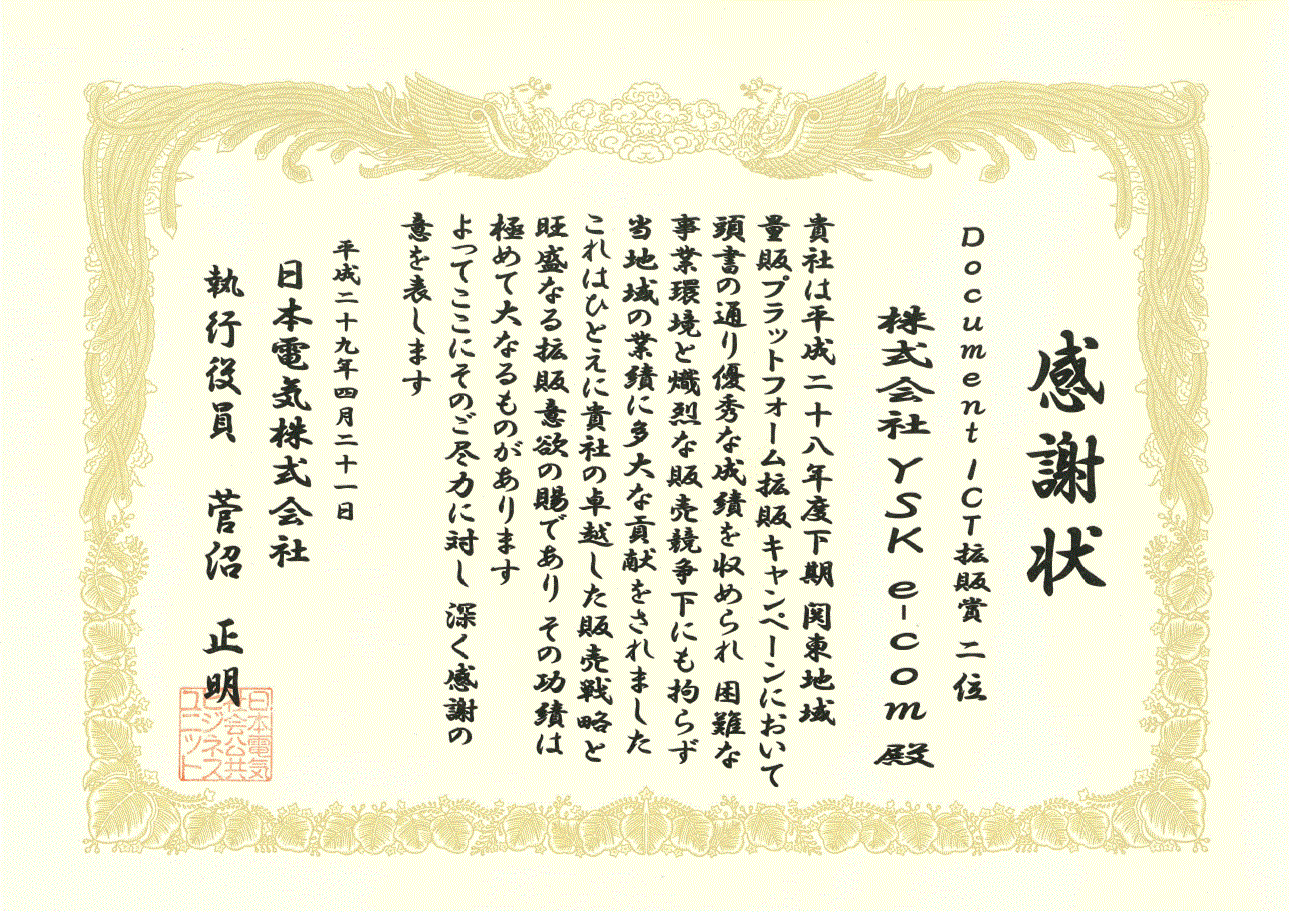 感謝状
Document ICT拡販賞 二位
株式会社 YSK e-com 殿
貴社は平成二十八年度下期 関東地域
量販プラットフォーム拡販キャンペーンにおいて
頭書の通り優秀な成績を収められ 困難な
事業環境と熾烈な販売競争下にも拘らず
当地域の業績に多大な貢献をされました
これはひとえに貴社の卓越した販売戦略と
旺盛なる拡販意欲の賜であり その功績は
極めて大なるものがあります
よってここにそのご尽力に対し 深く感謝の
意を表します
平成二十九年四月二十一日
日本電気株式会社
執行役員 菅沼 正明
日本電気
社会公共
ビジネス
ユニット